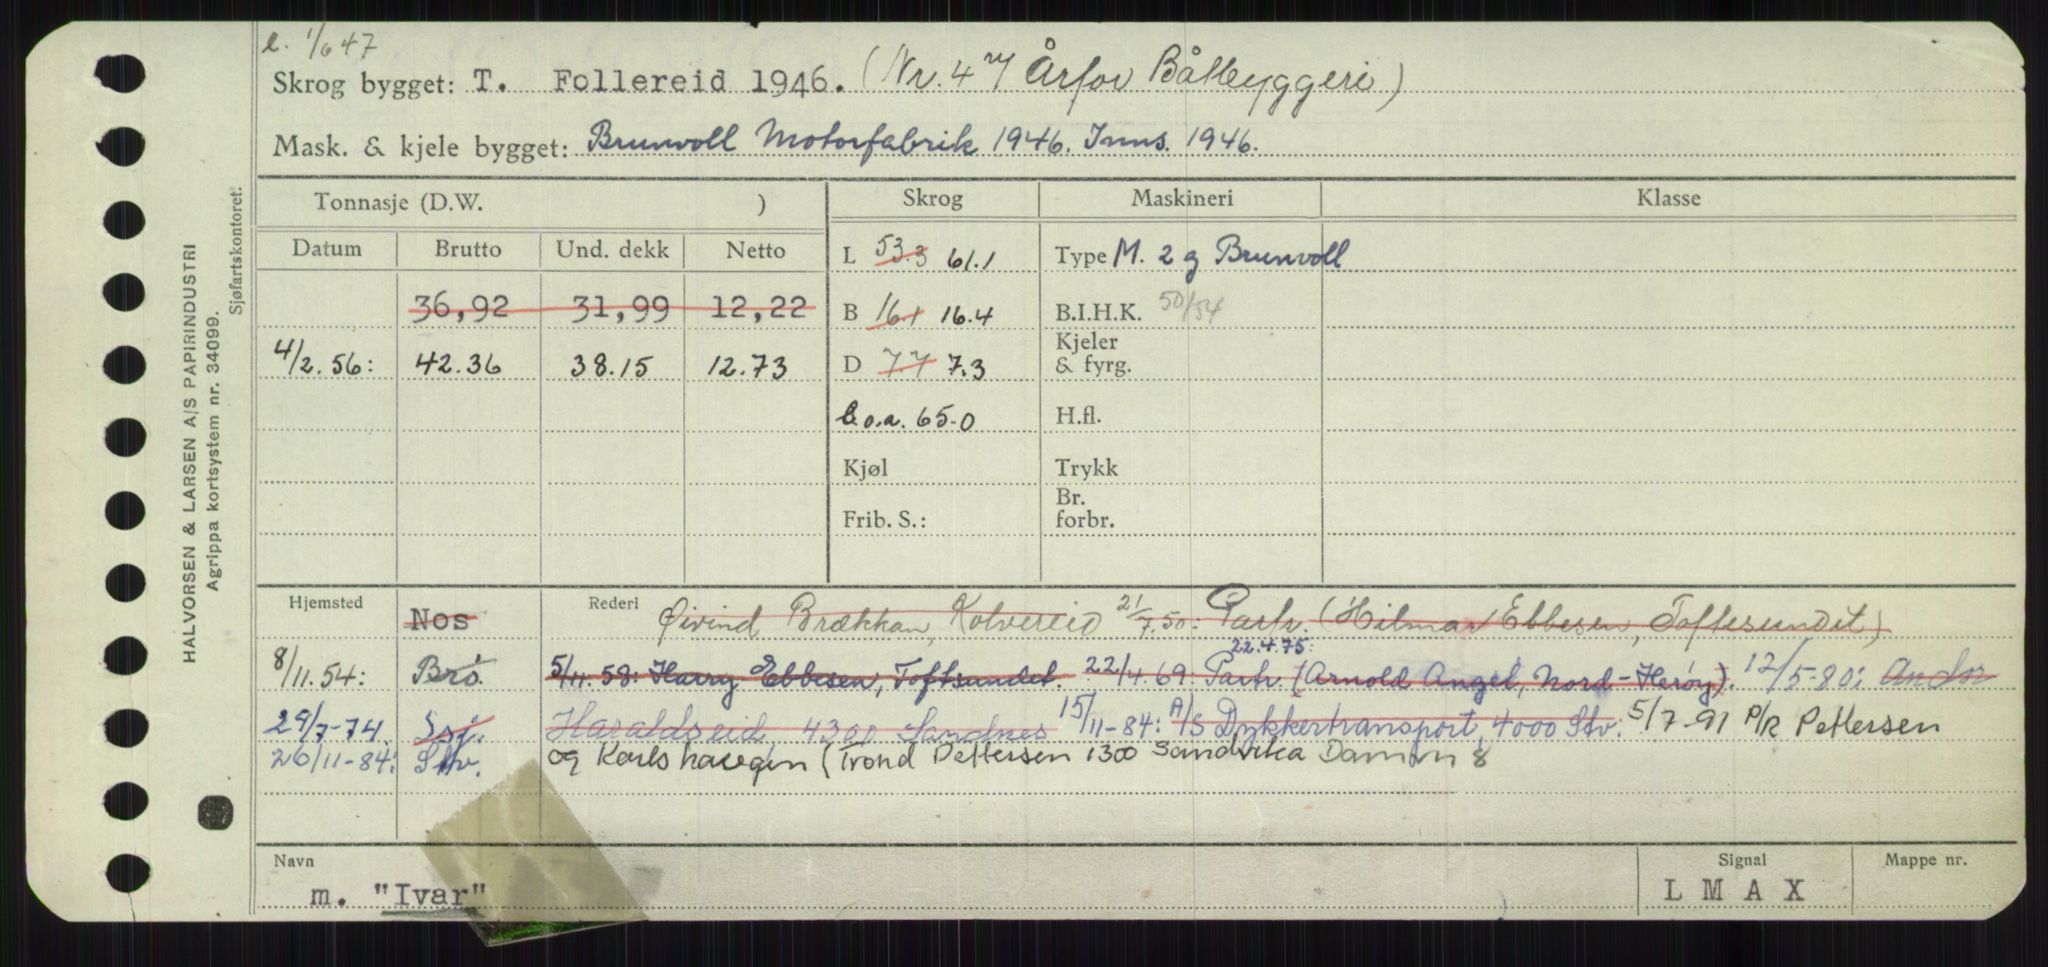 e. 1/6 47
Skrog bygget: T. Follereid 1946. (Nr. 47 Årfor Båtbyggeri)
Mask. & kjele bygget: Brunvoll Motorfabrik 1946. Inns. 1946.
HALVORSEN & LARSEN A/S PAPIRINDUSTRI
Agrippa kortsystem nr. 34099.
Sjøfartskontoret.
Tonnasje (D.W. ) Skrog Maskineri Klasse
Datum Brutto Und. dekk Netto L 53.3 61.1 Type M. 2 g Brunvoll
36,92 31,99 12,22 B 16.1 16.4 B.I.H.K. 50/54
4/2.56: 42.36 38.15 12.73 D 7.7 7.3 Kjeler & fyrg.
l.o.a. 65.0 H.fl.
Kjøl Trykk
Frib. S.: Br. forbr.
Hjemsted Nos Rederi Øivind Brækkan, Kolvereid 21/7.50: Partr. (Hilmar Ebbesen, Toftesundet)
22.4.75:
8/11.54: Brö. 5/11.58: Harry Ebbesen, Toftsundet. 22/4 69 Partr. (Arnold Angel, Nord-Herøy). 12/5-80: Andor
29/7-74. Ssj. Haraldseid 4300 Sandnes 15/11-84: A/S Dykkertransport, 4000 Stv. 5/7-91 P/R Pettersen
26/11-84: Stv. og Karlshaugen (Trond Pettersen 1300 Sandvika
Navn Signal Mappe nr.
m. "Ivar" L M A X